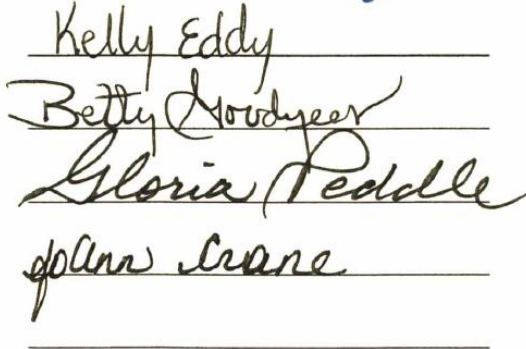 Kelly Eddy
Betty Goodyear
Gloria Peddle
JoAnn Crane